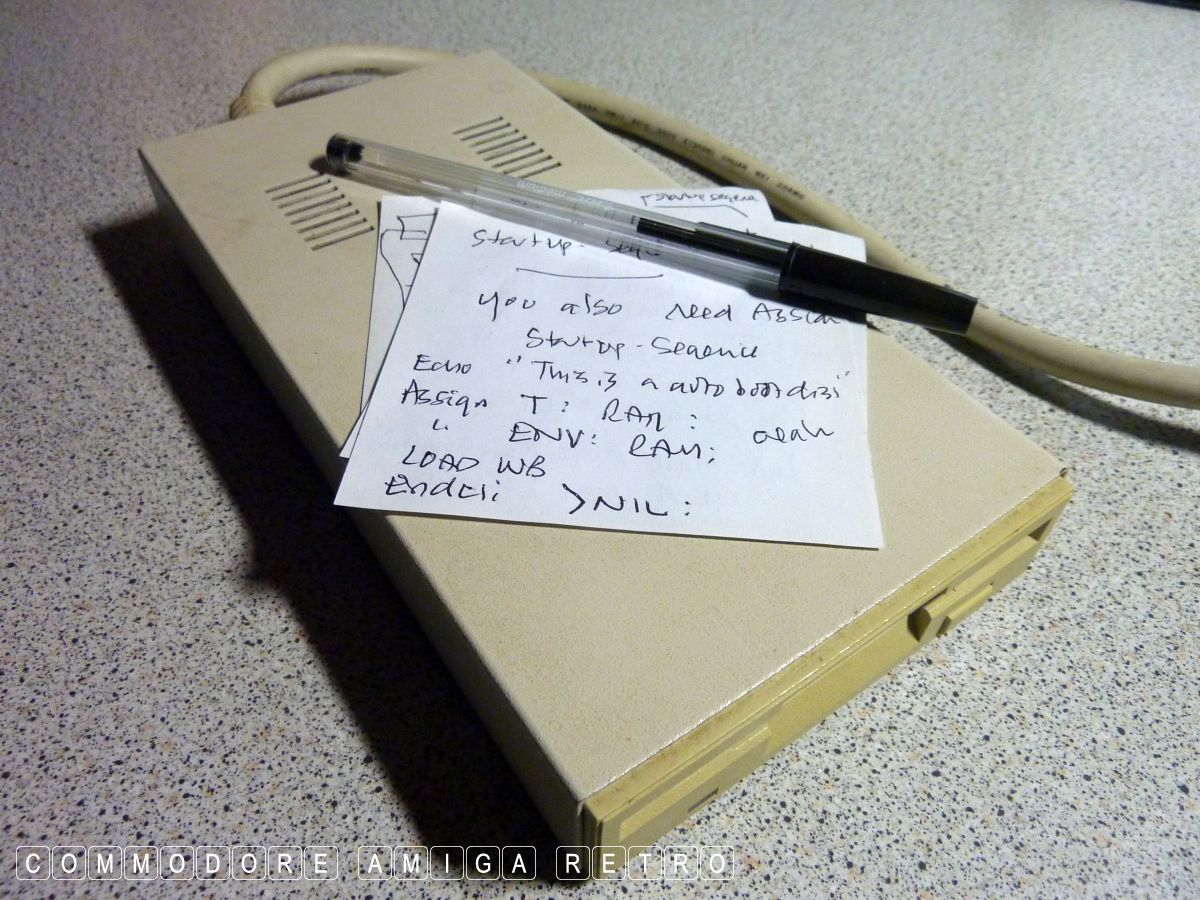 startup sequence
Startup - Sequ
You also Need Assign
Startup - Sequence
Echo "This is a auto boot disk"
Assign T: RAM:
" ENV: RAM;
LOAD WB
Endcli >NIL:
COMMODORE AMIGA RETRO